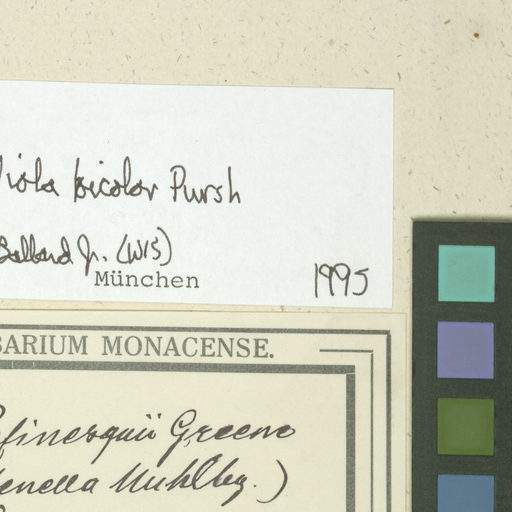 Viola bicolor Pursh
Ballard Jr. (WIS)
München 1995
BARIUM MONACENSE.
finesquii Greene
enella Muhlbg.)